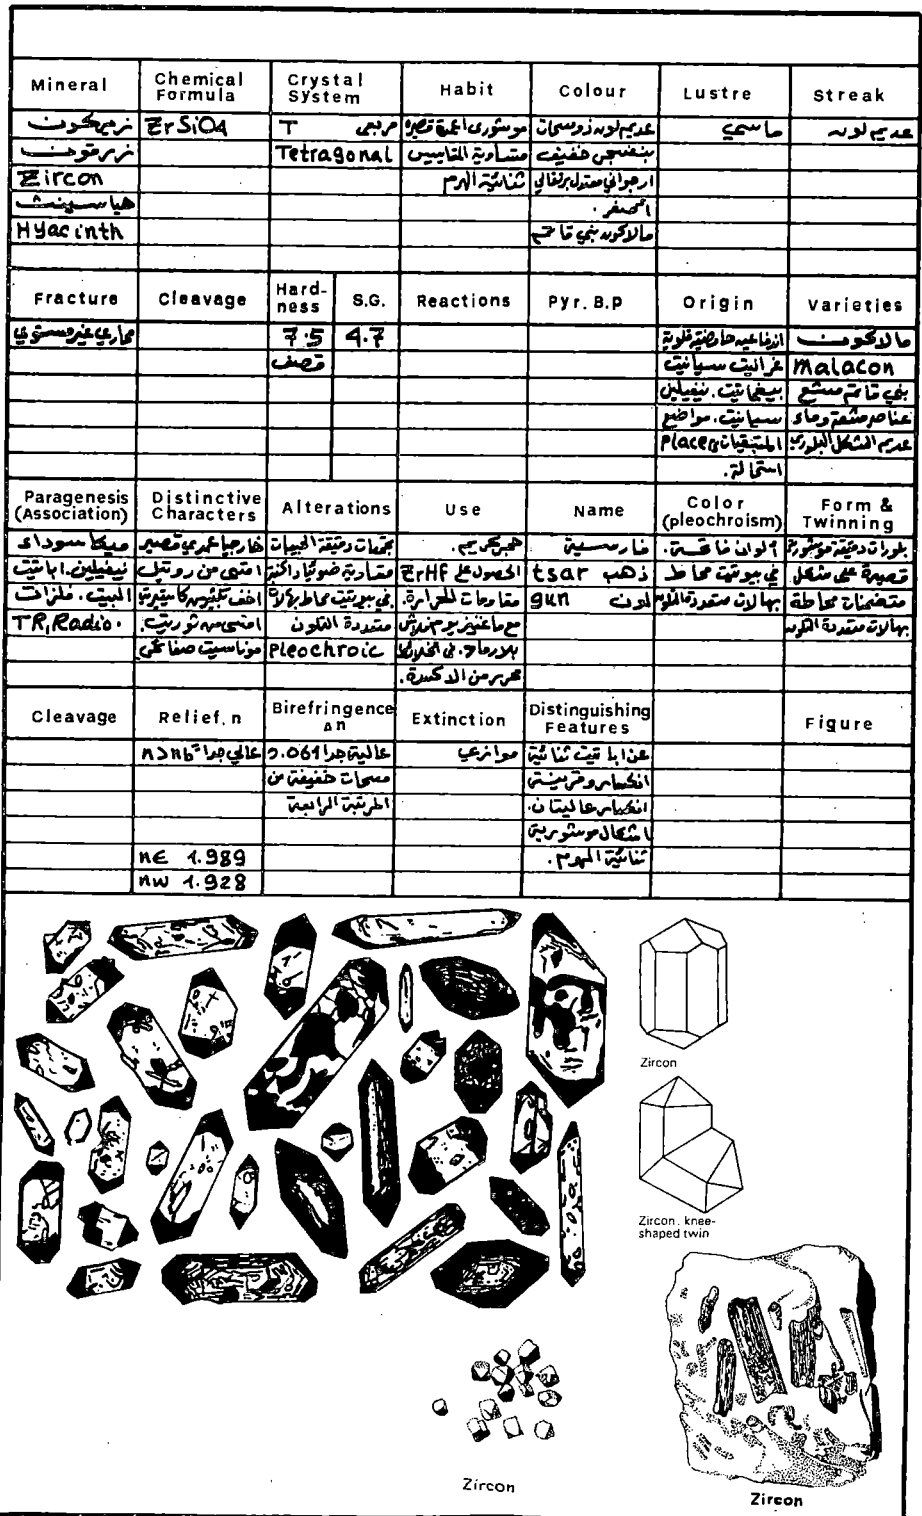 Mineral Chemical Formula Crystal System Habit Colour Lustre Streak
زيركون ZrSiO4 T مربعي موشوري اعمدة قصيرة عديم لون ذو سحات ماسي عديم لون
زرقون Tetragonal متساوية المقاييس بنفسجي خفيف
Zircon ثنائية الهرم ارجواني معتدل برتقالي
هياسينث اصفر.
Hyacinth مالاكون بني قاتم
Fracture Cleavage Hardness S.G. Reactions Pyr. B.P Origin Varieties
محاري غير مستوي 7.5 4.7 اندفاعية حامضية قلوية مالاكون
قصف غرانيت سيانيت Malacon
بيغماتيت. نيفيلين بني قاتم مشبع
سيانيت. مواضع عناصر مشعة وماء
المتبقيات Placer عديم الشكل البلوري
استحالة.
Paragenesis (Association) Distinctive Characters Alterations Use Name Color (pleochroism) Form & Twinning
ميكا سوداء خارجيا عمودي قصير تجمعات دقيقة الحبيبات حجر كريم. فارسية ألوان فاتحة. بلورات دقيقة موشورية
نيفيلين. اباتيت اقسى من روتيل الحصول على ZrHf ذهب tsar في بيوتيت محاط قصيرة على شكل
البيت. فلزات في بيوتيت محاط بهالات مقاومات للحرارة. لون gun بهالات متعددة متضمنات محاطة
TR, Radio. متعددة التلون بهالات متعددة التلون
Pleochroic
Cleavage Relief. n Birefringence Δn Extinction Distinguishing Features Figure
عالي جدا عالية جدا 0.061 موازي عن اباتيت ثنائية
سحات خفيفة من انكسار وقرينة
المرتبة الرابعة انكسار عاليتان.
اشكال موشورية
nε 1.989 ثنائية الهرم.
nω 1.928
Zircon
Zircon. knee-
shaped twin
Zircon
Zircon